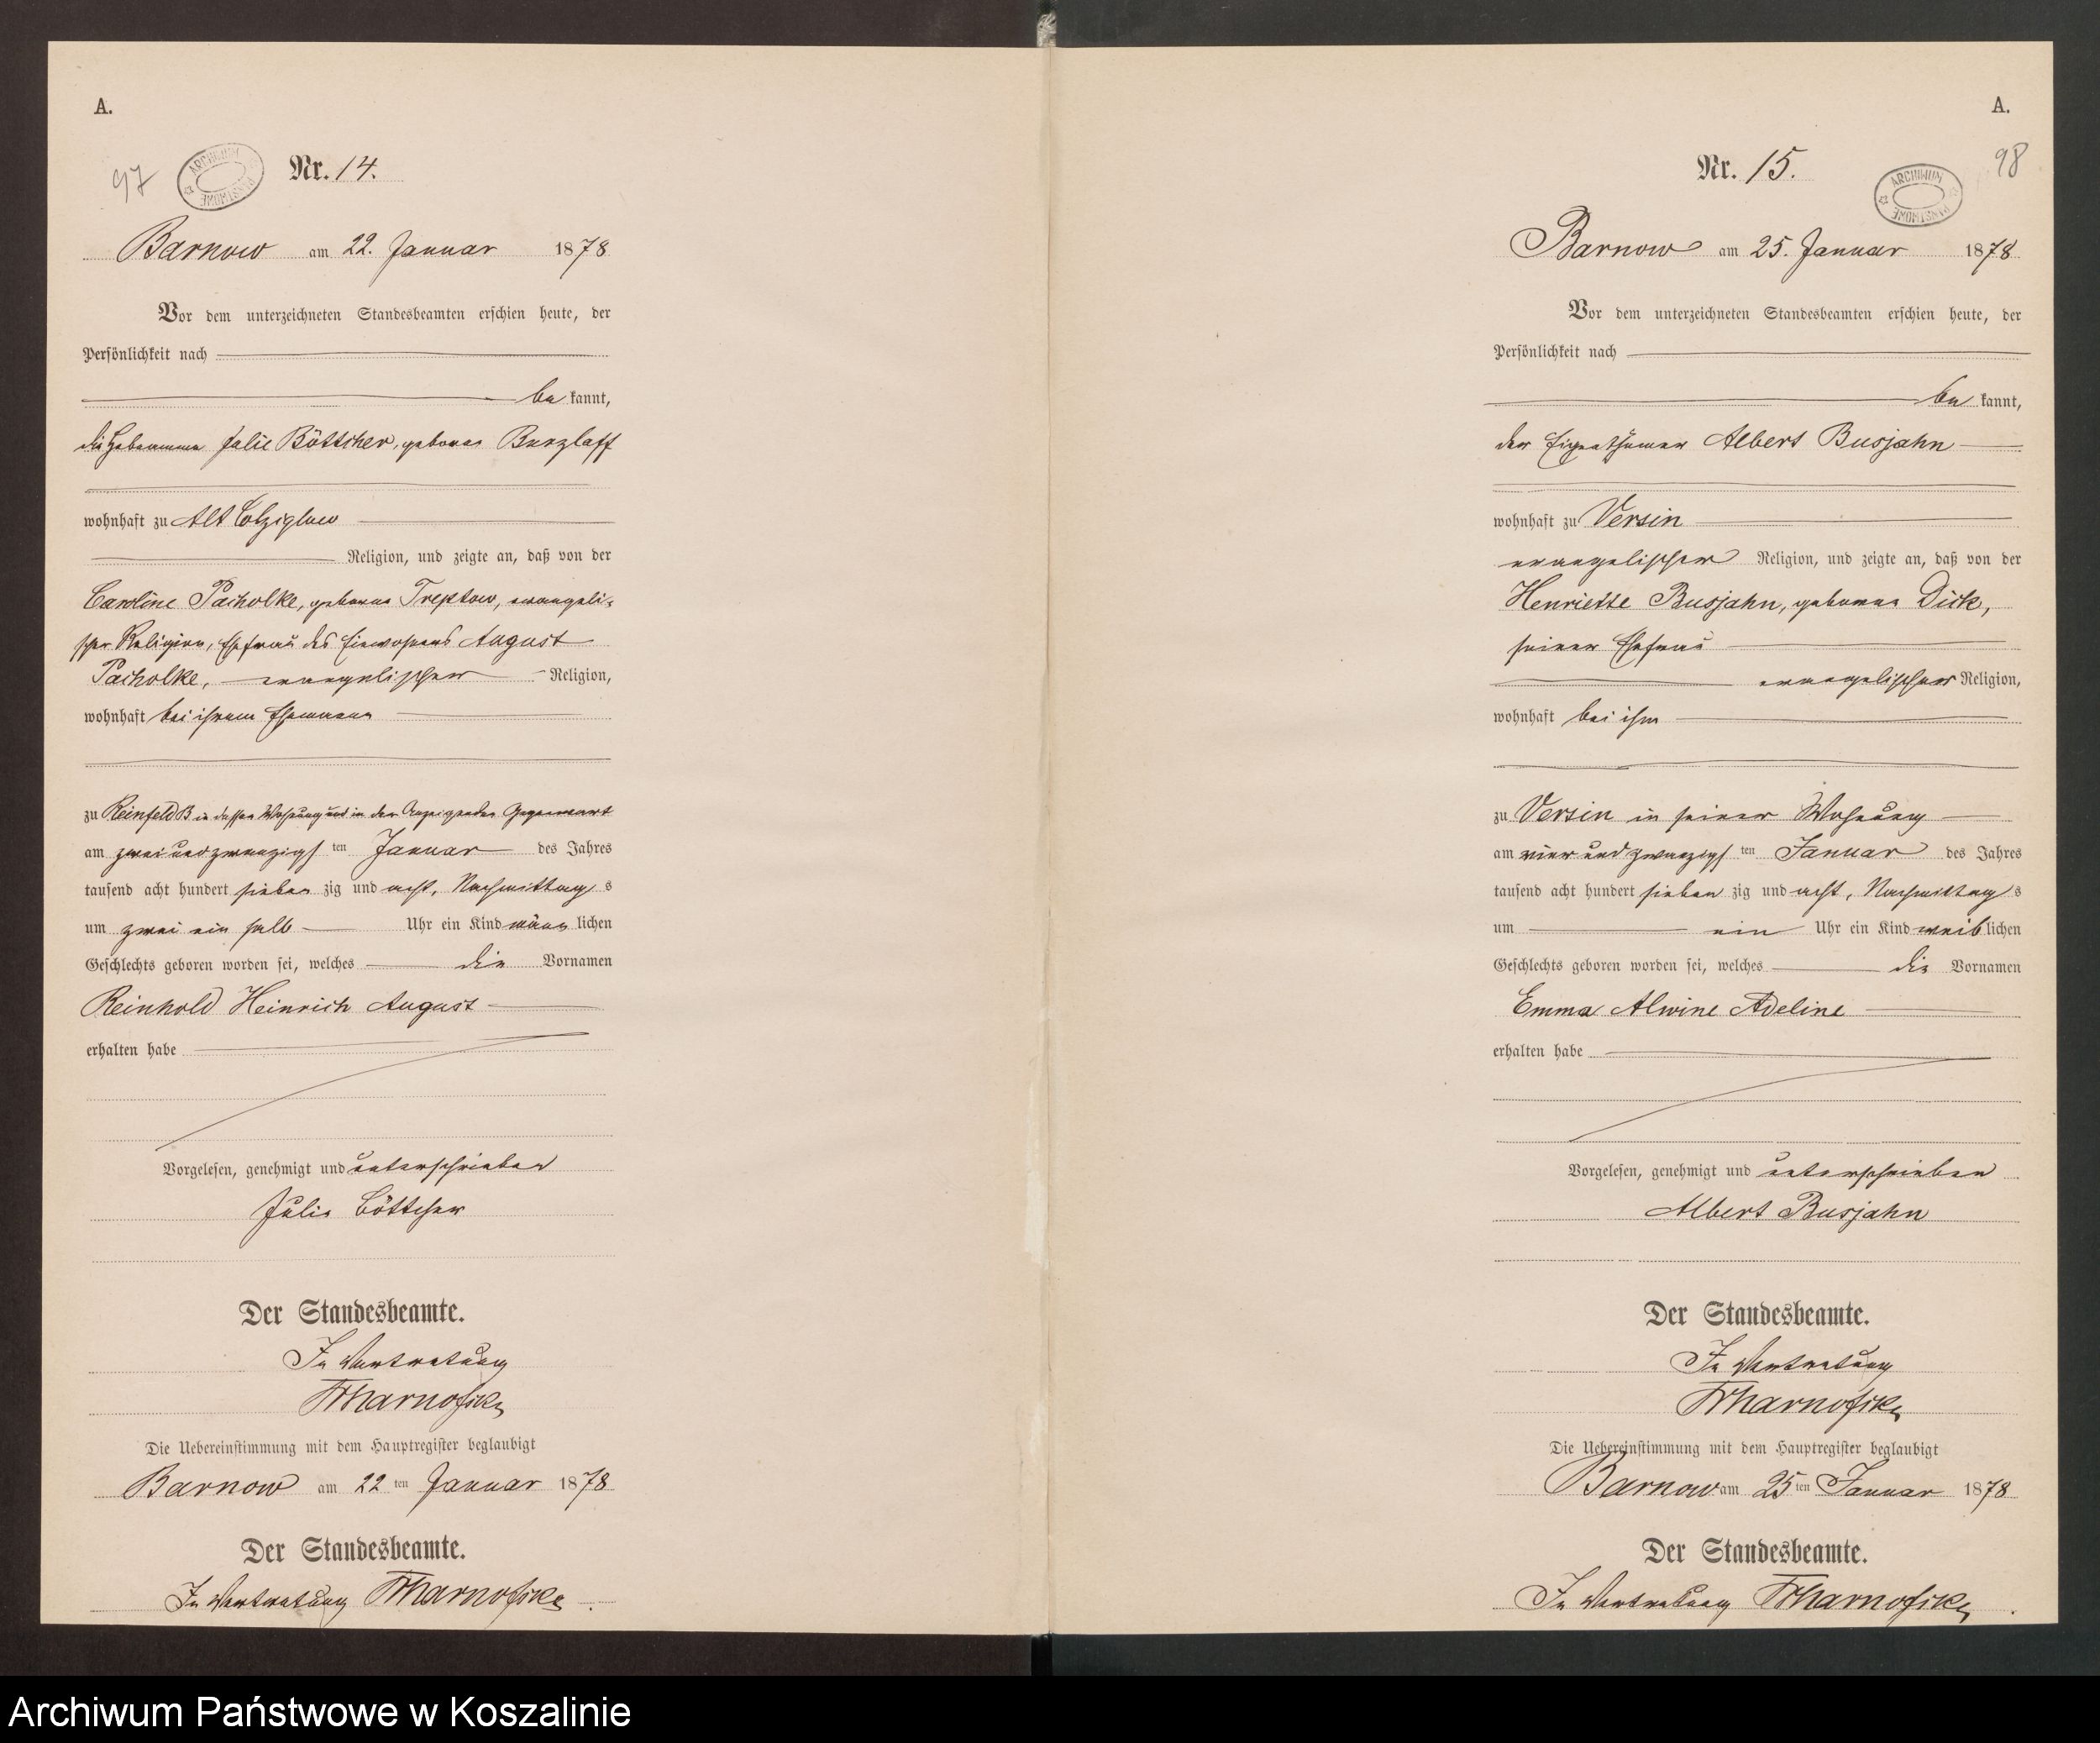 A.
97
ARCHIWUM PAŃSTWOWE
Nr. 14.
Barnow am 22. Januar 1878
Vor dem unterzeichneten Standesbeamten erschien heute, der
Persönlichkeit nach
be kannt,
die Hebeamme Julie Böttcher, geborne Burzlaff
wohnhaft zu Alt Colziglow
Religion, und zeigte an, daß von der
Caroline Pacholke, geborne Treptow, evangeli-
scher Religion, Ehefrau des Einwohners August
Pacholke, evangelischer Religion,
wohnhaft bei ihrem Ehemann
zu Reinfeld B in dessen Wohnung und in der Anzeigenden Gegenwart
am zwei und zwanzigs ten Januar des Jahres
tausend acht hundert sieben zig und acht, Nachmittag s
um zwei ein halb Uhr ein Kind männ lichen
Geschlechts geboren worden sei, welches die Vornamen
Reinhold Heinrich August
erhalten habe
Vorgelesen, genehmigt und unterschrieben
Julie Böttcher
Der Standesbeamte.
In Vertretung
Die Uebereinstimmung mit dem Hauptregister beglaubigt
Barnow am 22 ten Januar 1878
Der Standesbeamte.
In Vertretung
A.
98
ARCHIWUM PAŃSTWOWE
Nr. 15.
Barnow am 25. Januar 1878
Vor dem unterzeichneten Standesbeamten erschien heute, der
Persönlichkeit nach
be kannt,
der Eigenthümer Albert Busjahn
wohnhaft zu Versin
evangelischer Religion, und zeigte an, daß von der
Henriette Busjahn, geborne Dick,
seiner Ehefrau
evangelischer Religion,
wohnhaft bei ihm
zu Versin in seiner Wohnung
am vier und zwanzigs ten Januar des Jahres
tausend acht hundert sieben zig und acht, Nachmittag s
um ein Uhr ein Kind weib lichen
Geschlechts geboren worden sei, welches die Vornamen
Emma Alwine Adeline
erhalten habe
Vorgelesen, genehmigt und unterschrieben
Albert Busjahn
Der Standesbeamte.
In Vertretung
Die Uebereinstimmung mit dem Hauptregister beglaubigt
Barnow am 25 ten Januar 1878
Der Standesbeamte.
In Vertretung
Archiwum Państwowe w Koszalinie